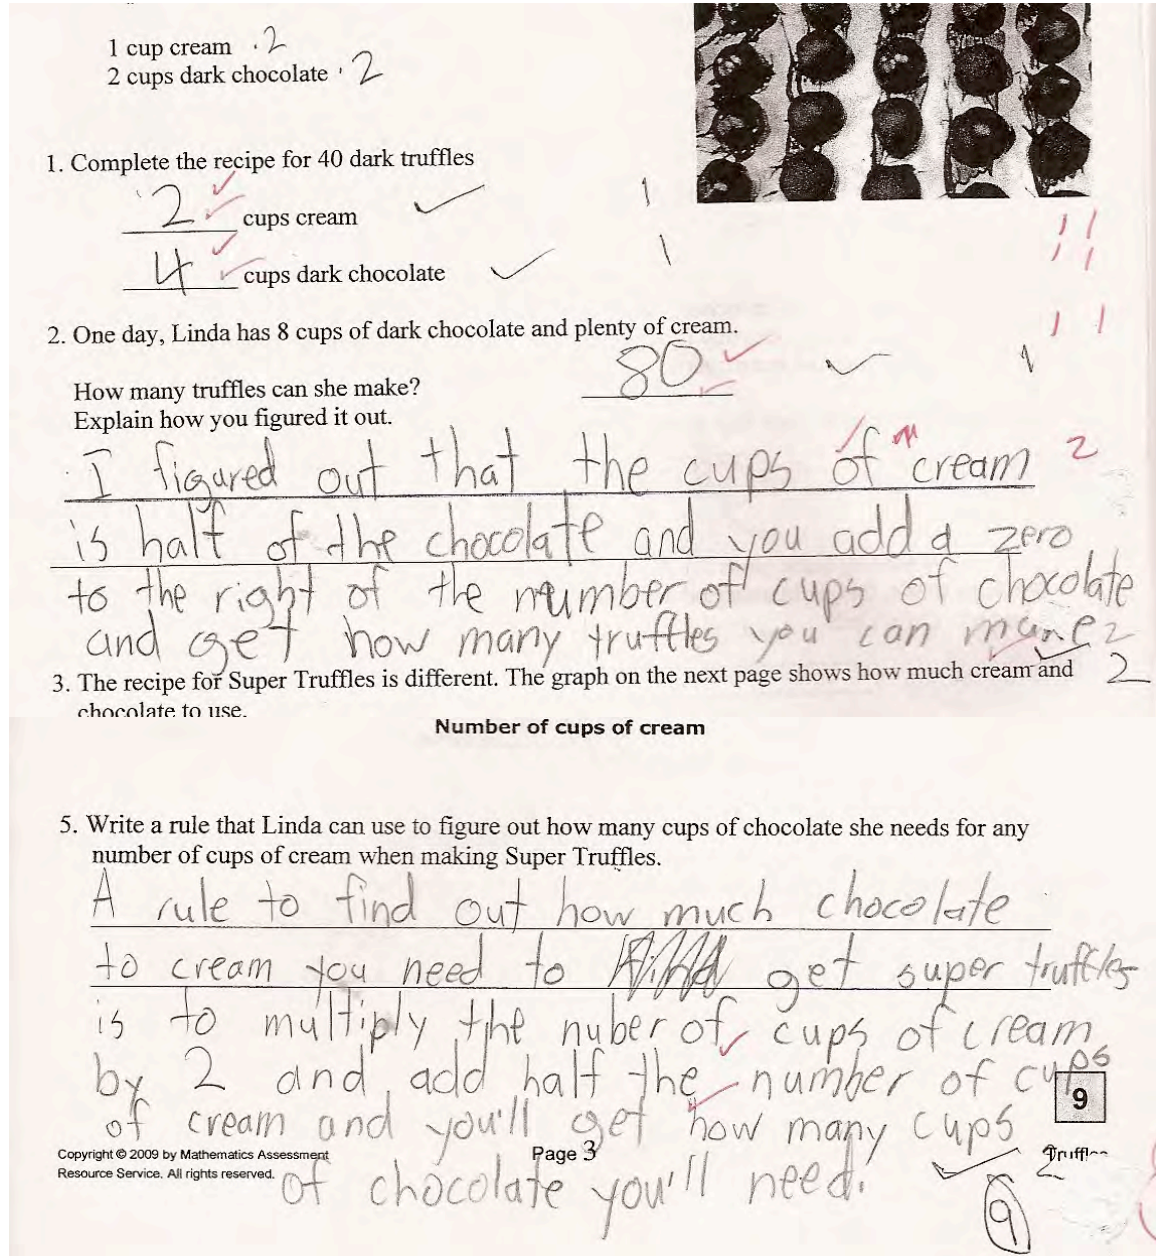 1 cup cream · 2
2 cups dark chocolate · 2
1. Complete the recipe for 40 dark truffles
2 cups cream 1
4 cups dark chocolate 1
2. One day, Linda has 8 cups of dark chocolate and plenty of cream.
80 1
How many truffles can she make?
Explain how you figured it out.
I figured out that the cups of cream 2
is half of the chocolate and you add a zero
to the right of the number of cups of chocolate
and get how many truffles you can make 2
3. The recipe for Super Truffles is different. The graph on the next page shows how much cream and 2
chocolate to use.
Number of cups of cream
5. Write a rule that Linda can use to figure out how many cups of chocolate she needs for any
number of cups of cream when making Super Truffles.
A rule to find out how much chocolate
to cream you need to get super truffles
is to multiply the nuber of cups of cream
by 2 and add half the number of cups
9
of cream and you'll get how many cups
Copyright © 2009 by Mathematics Assessment Page 3 2
Resource Service. All rights reserved.
of chocolate you'll need.
9